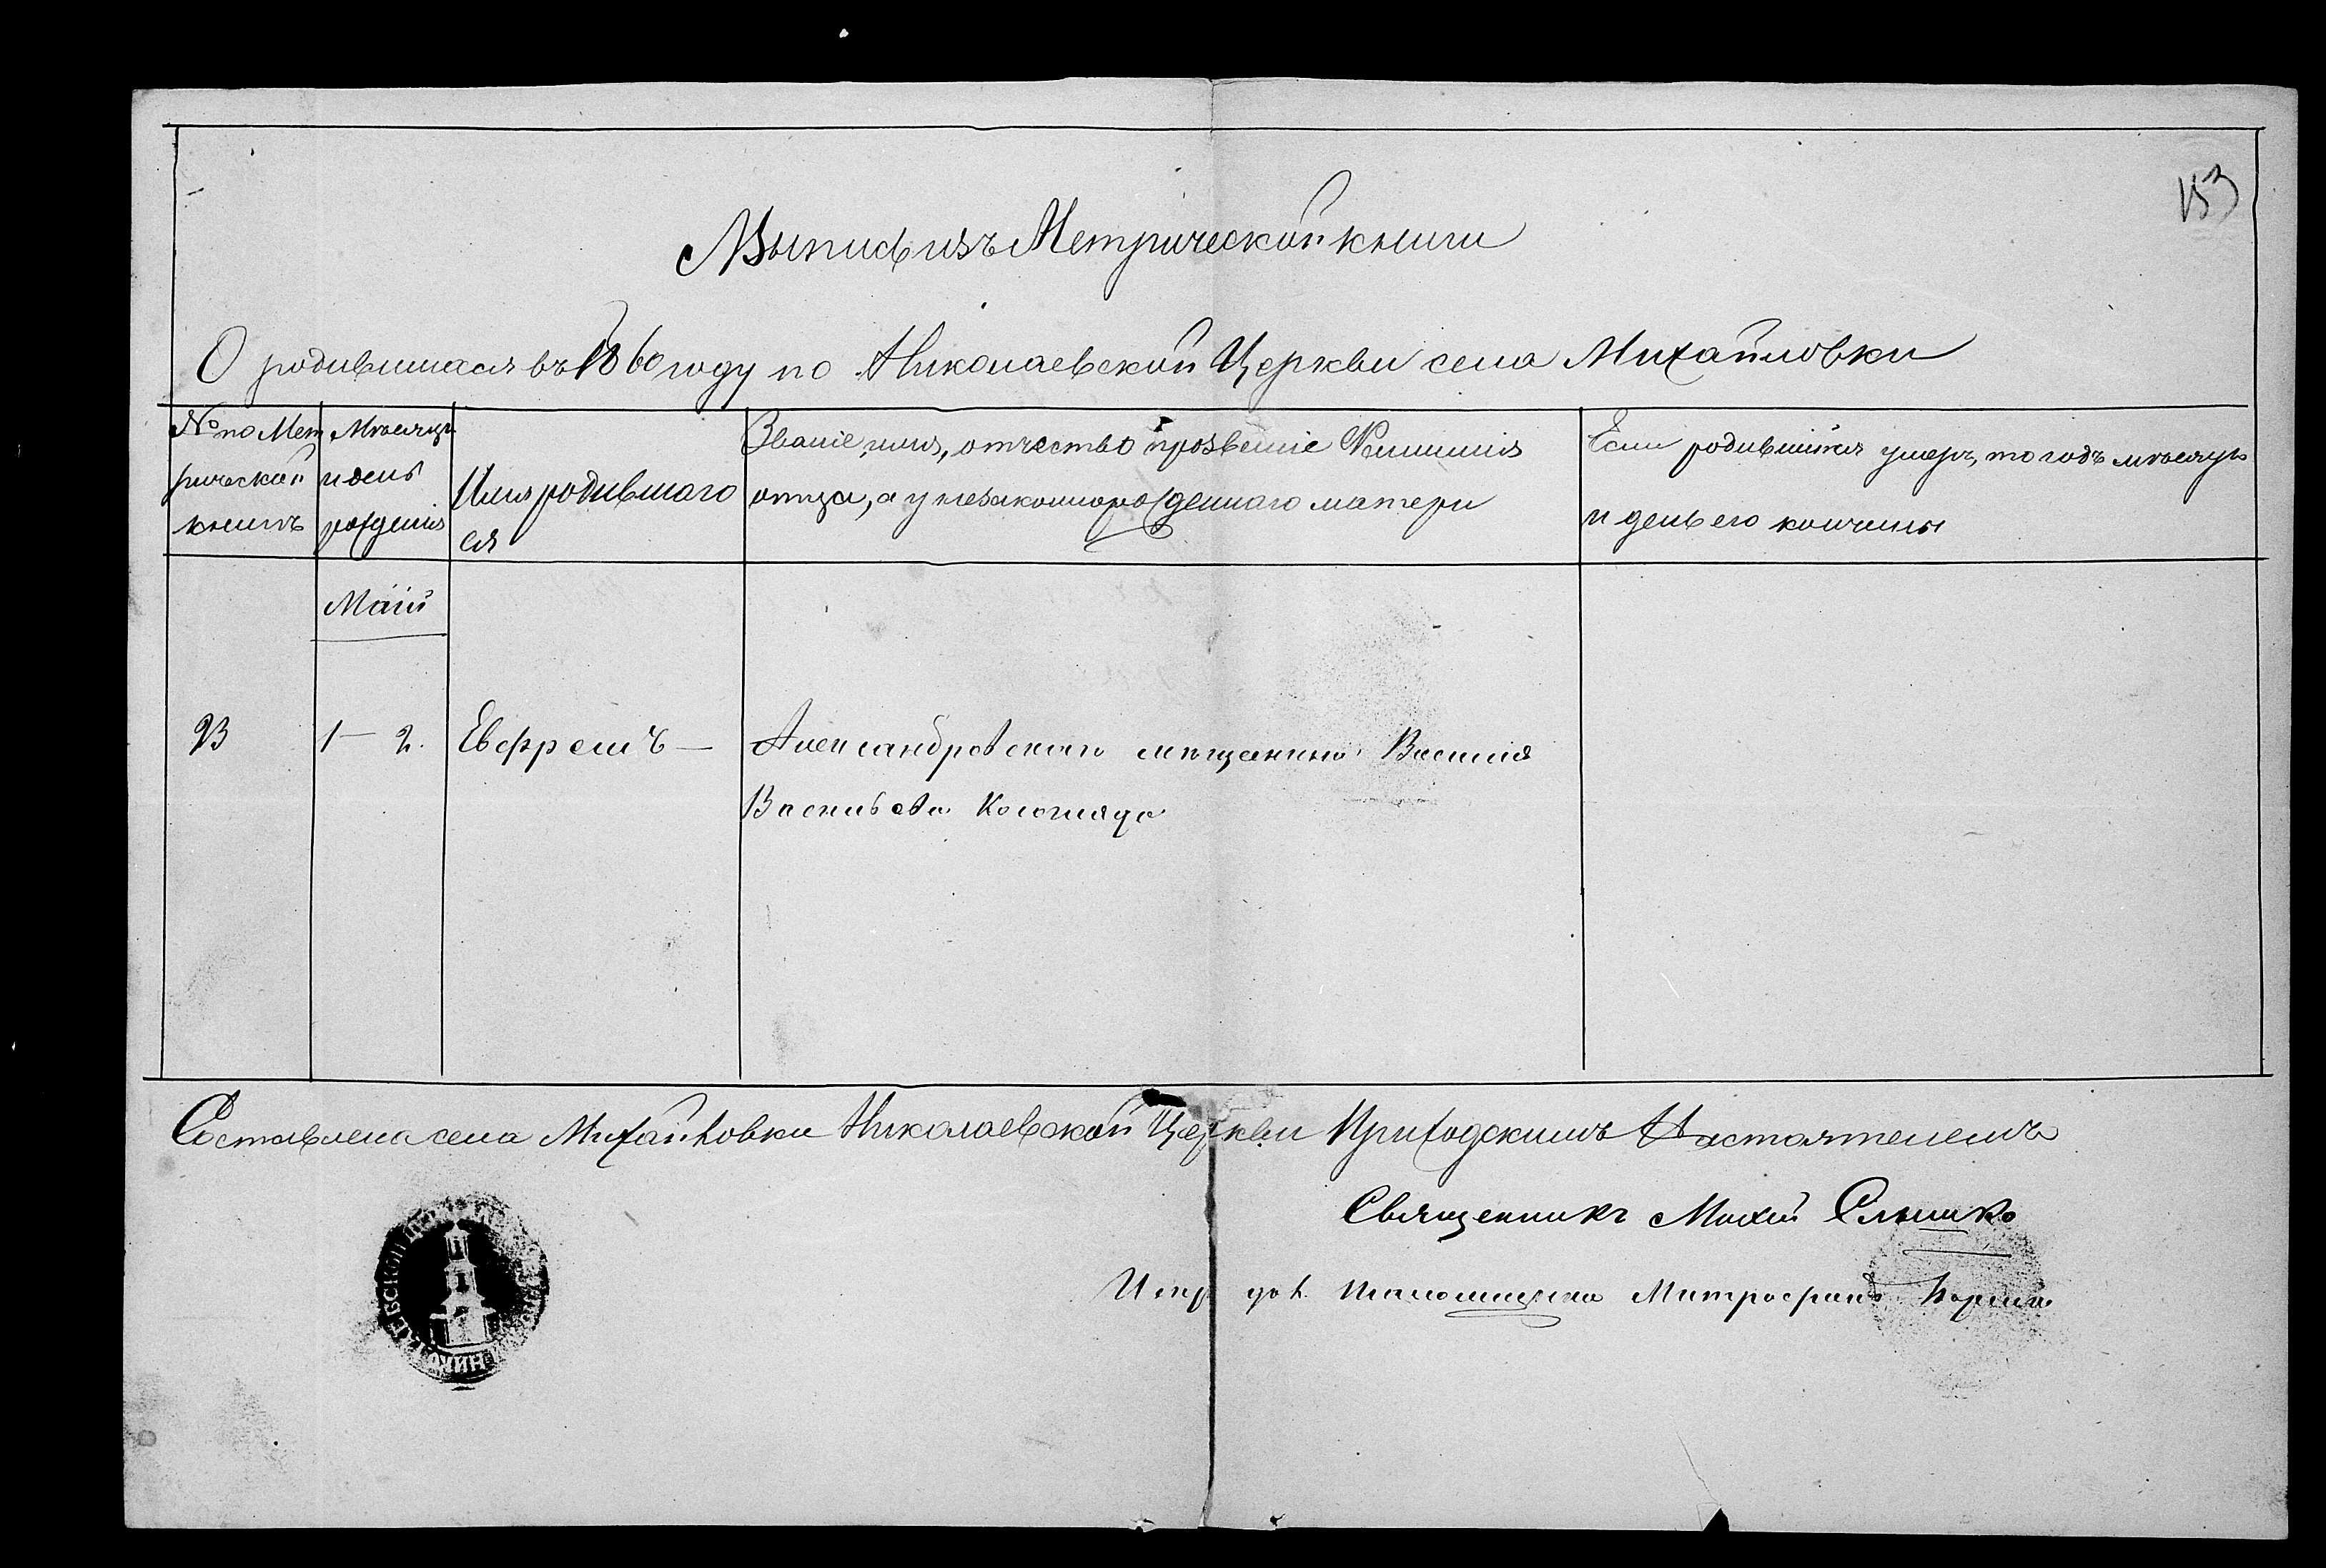 153
Выпись изъ Метрической книги
О родившихся въ 1860 году по Николаевской Церкви села Михайловки
№ по Мет
рической
книгѣ
Мѣсяцъ
и день
рожденія
Имя родившаго
ся
Званіе, имя, отчество прозвеніе Фамилія
отца, а у незаконнорожденнаго матери
Если родившійся умеръ, то годъ мѣсяцъ
и день его кончины
Маій
23
1 — 2.
Евфремъ —
Александровскаго мѣщанина Василія
Васильева Кологляда
Составлена села Михайловки Николаевской Церкви Приходскимъ Настоятелемъ
Священникъ
Испр дол. Псаломщика Митрофанъ